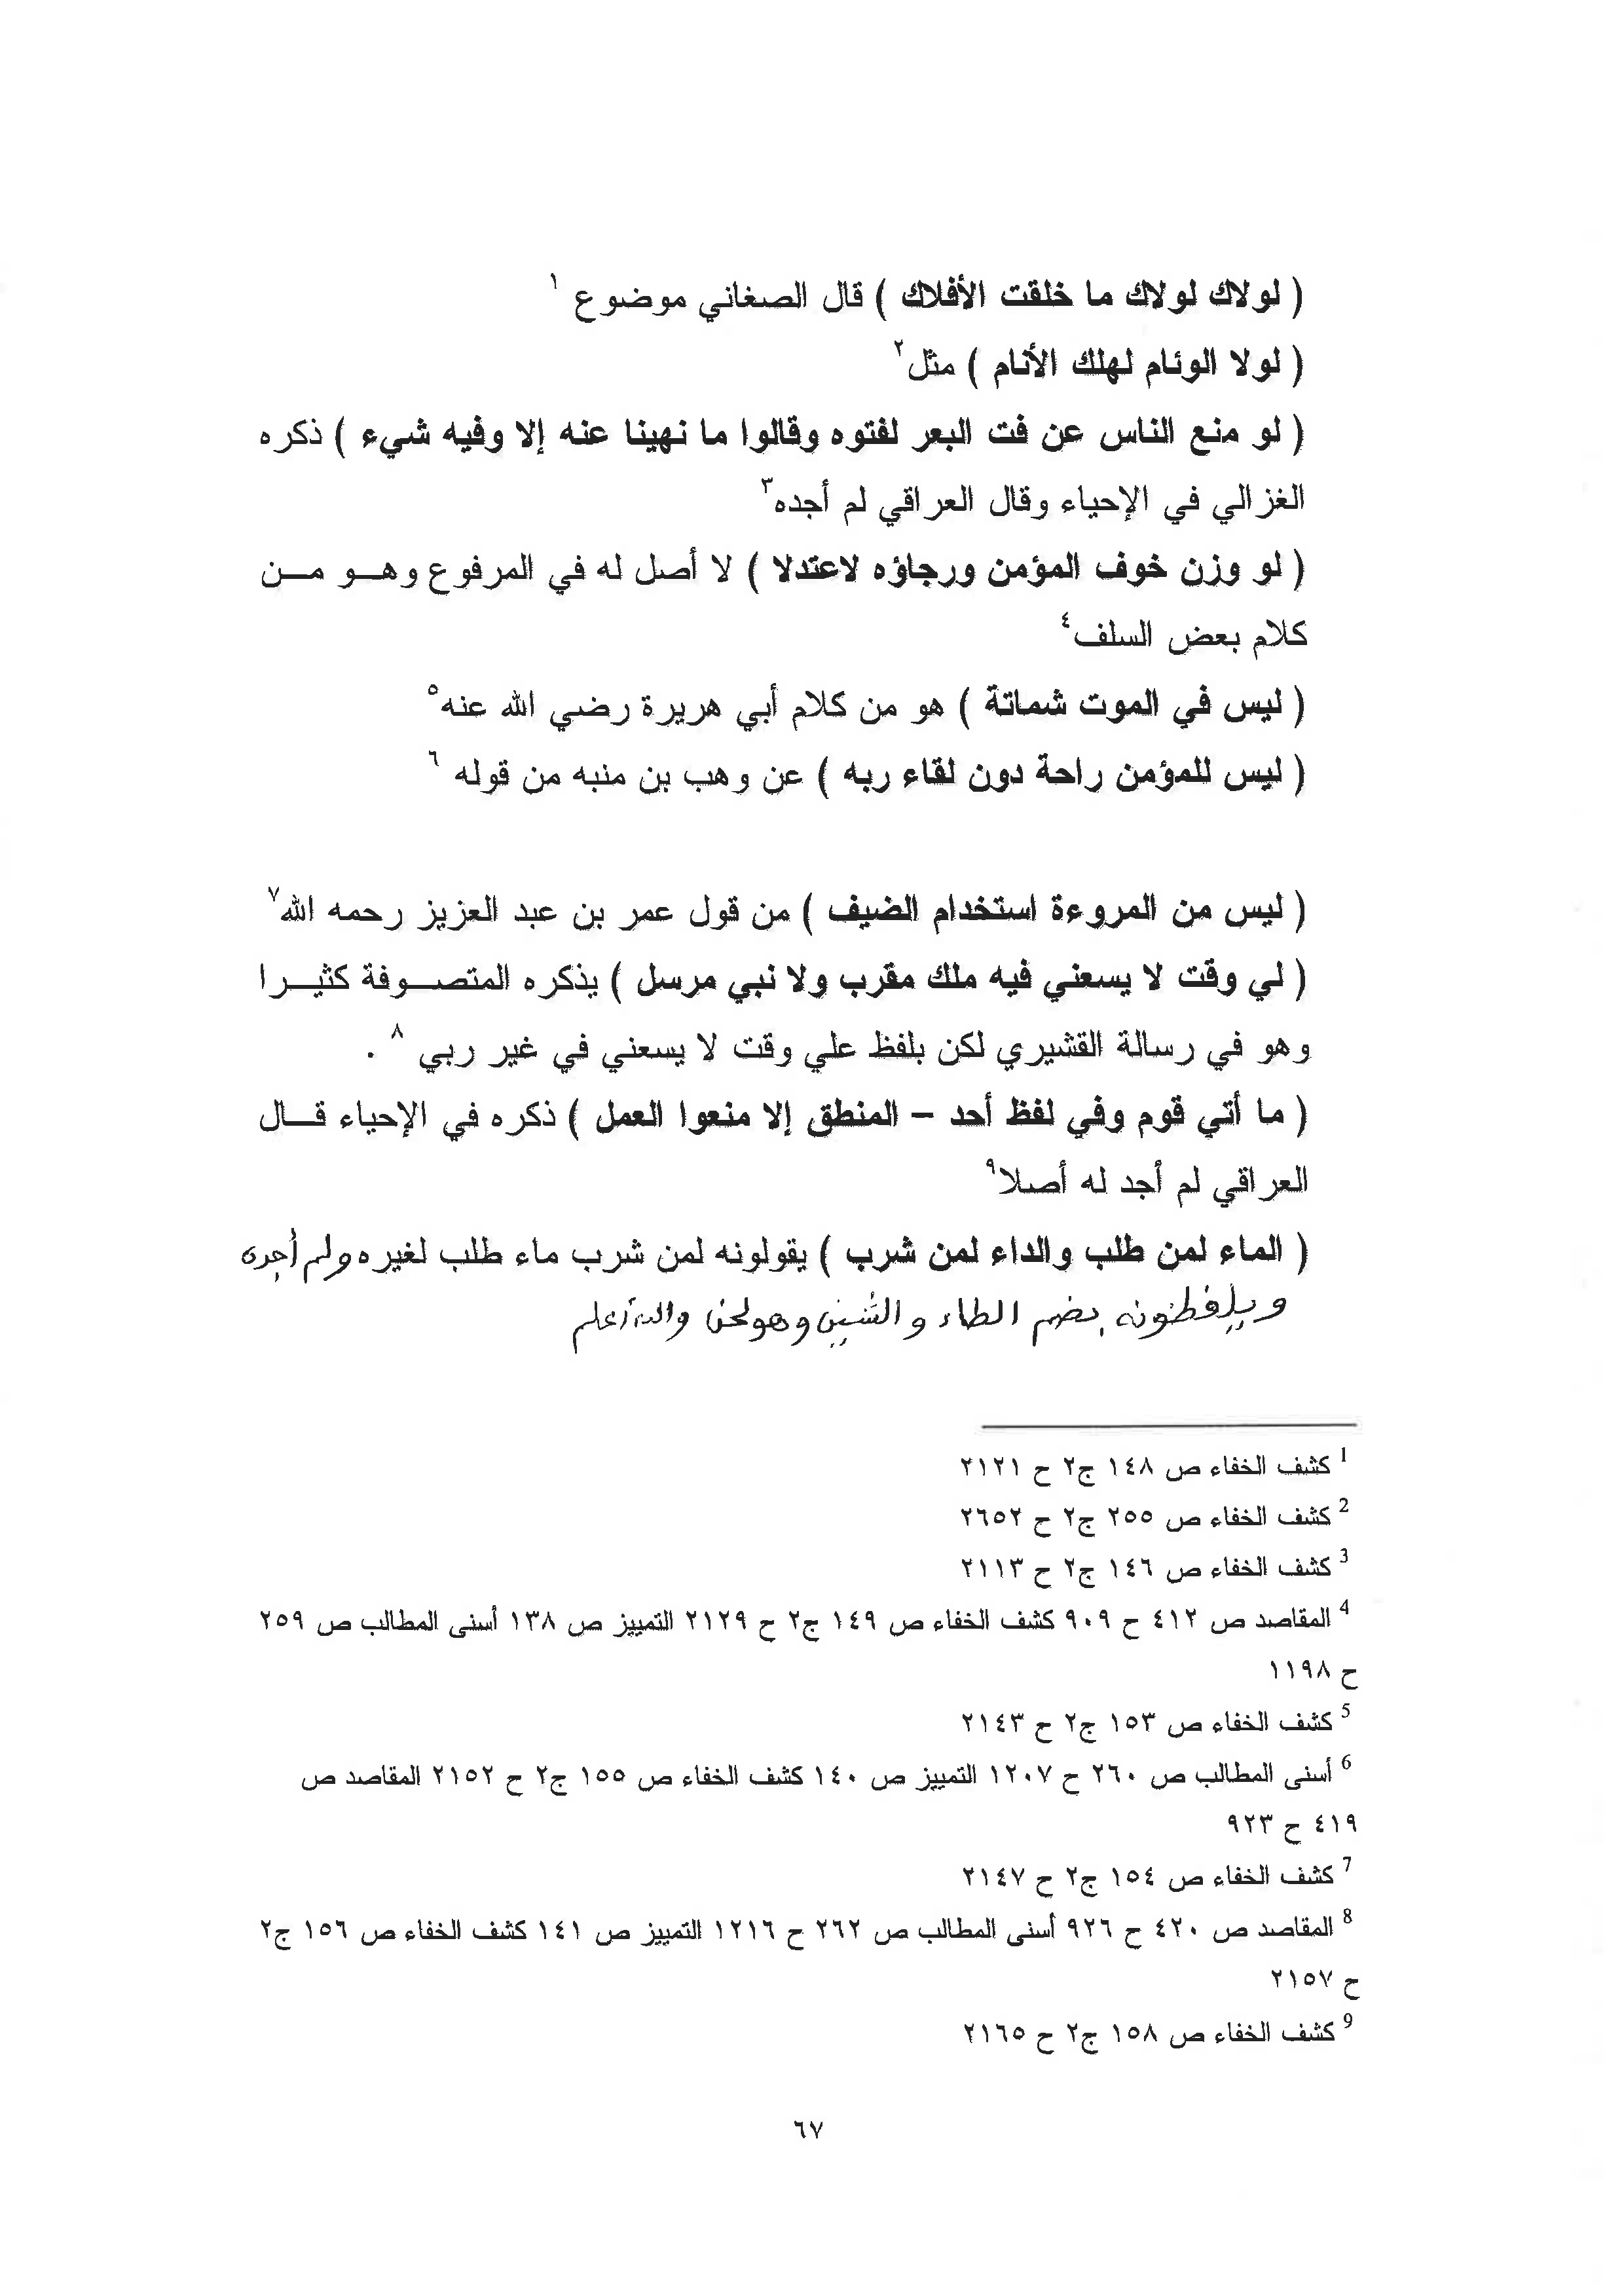 ( لولاك لولاك ما خلقت الأفلاك ) قال الصغاني موضوع ١
( لولا الوئام لهلك الأنام ) مثل٢
( لو منع الناس عن فت البعر لفتوه وقالوا ما نهينا عنه إلا وفيه شيء ) ذكره
الغزالي في الإحياء وقال العراقي لم أجده٣
( لو وزن خوف المؤمن ورجاؤه لاعتدلا ) لا أصل له في المرفوع وهـو مـن
كلام بعض السلف٤
( ليس في الموت شماتة ) هو من كلام أبي هريرة رضي الله عنه٥
( ليس للمؤمن راحة دون لقاء ربه ) عن وهب بن منبه من قوله ٦
( ليس من المروءة استخدام الضيف ) من قول عمر بن عبد العزيز رحمه الله٧
( لي وقت لا يسعني فيه ملك مقرب ولا نبي مرسل ) يذكره المتصـوفة كثيـرا
وهو في رسالة القشيري لكن بلفظ علي وقت لا يسعني في غير ربي ٨ .
( ما أتي قوم وفي لفظ أحد – المنطق إلا منعوا العمل ) ذكره في الإحياء قـال
العراقي لم أجد له أصلا٩
( الماء لمن طلب والداء لمن شرب ) يقولونه لمن شرب ماء طلب لغيره ولم أجده
ويلفظونه بضم الطاء والشين وهو لحن والله أعلم
1 كشف الخفاء ص ١٤٨ ج٢ ح ٢١٢١
2 كشف الخفاء ص ٢٥٥ ج٢ ح ٢٦٥٢
3 كشف الخفاء ص ١٤٦ ج٢ ح ٢١١٣
4 المقاصد ص ٤١٢ ح ٩٠٩ كشف الخفاء ص ١٤٩ ج٢ ح ٢١٢٩ التمييز ص ١٣٨ أسنى المطالب ص ٢٥٩
ح ١١٩٨
5 كشف الخفاء ص ١٥٣ ج٢ ح ٢١٤٣
6 أسنى المطالب ص ٢٦٠ ح ١٢٠٧ التمييز ص ١٤٠ كشف الخفاء ص ١٥٥ ج٢ ح ٢١٥٢ المقاصد ص
٤١٩ ح ٩٢٣
7 كشف الخفاء ص ١٥٤ ج٢ ح ٢١٤٧
8 المقاصد ص ٤٢٠ ح ٩٢٦ أسنى المطالب ص ٢٦٢ ح ١٢١٦ التمييز ص ١٤١ كشف الخفاء ص ١٥٦ ج٢
ح ٢١٥٧
9 كشف الخفاء ص ١٥٨ ج٢ ح ٢١٦٥
٦٧